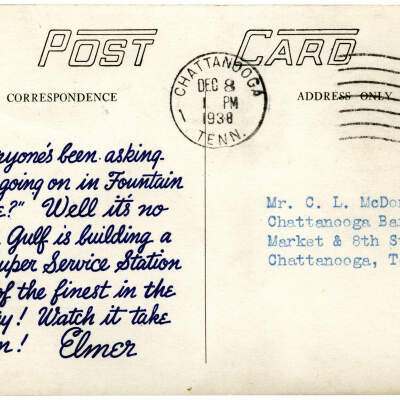 POST CARD
CORRESPONDENCE
ADDRESS ONLY
CHATTANOOGA
DEC 8
1 PM
1938
TENN.
1
ryone's been asking-
going on in Fountain
e?" Well it's no
Gulf is building a
uper Service Station
of the finest in the
y! Watch it take
n! Elmer
Mr. C. L. McDon
Chattanooga Ba
Market & 8th St
Chattanooga, T